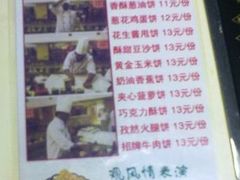 香酥葱油饼 11元/份
葱花鸡蛋饼 12元/份
花生酱甩饼 13元/份
酥甜豆沙饼 13元/份
黄金玉米饼 13元/份
奶油香蕉饼 13元/份
夹心菠萝饼 13元/份
巧克力酥饼 13元/份
孜然火腿饼 13元/份
招牌牛肉饼 13元/份
风情表演